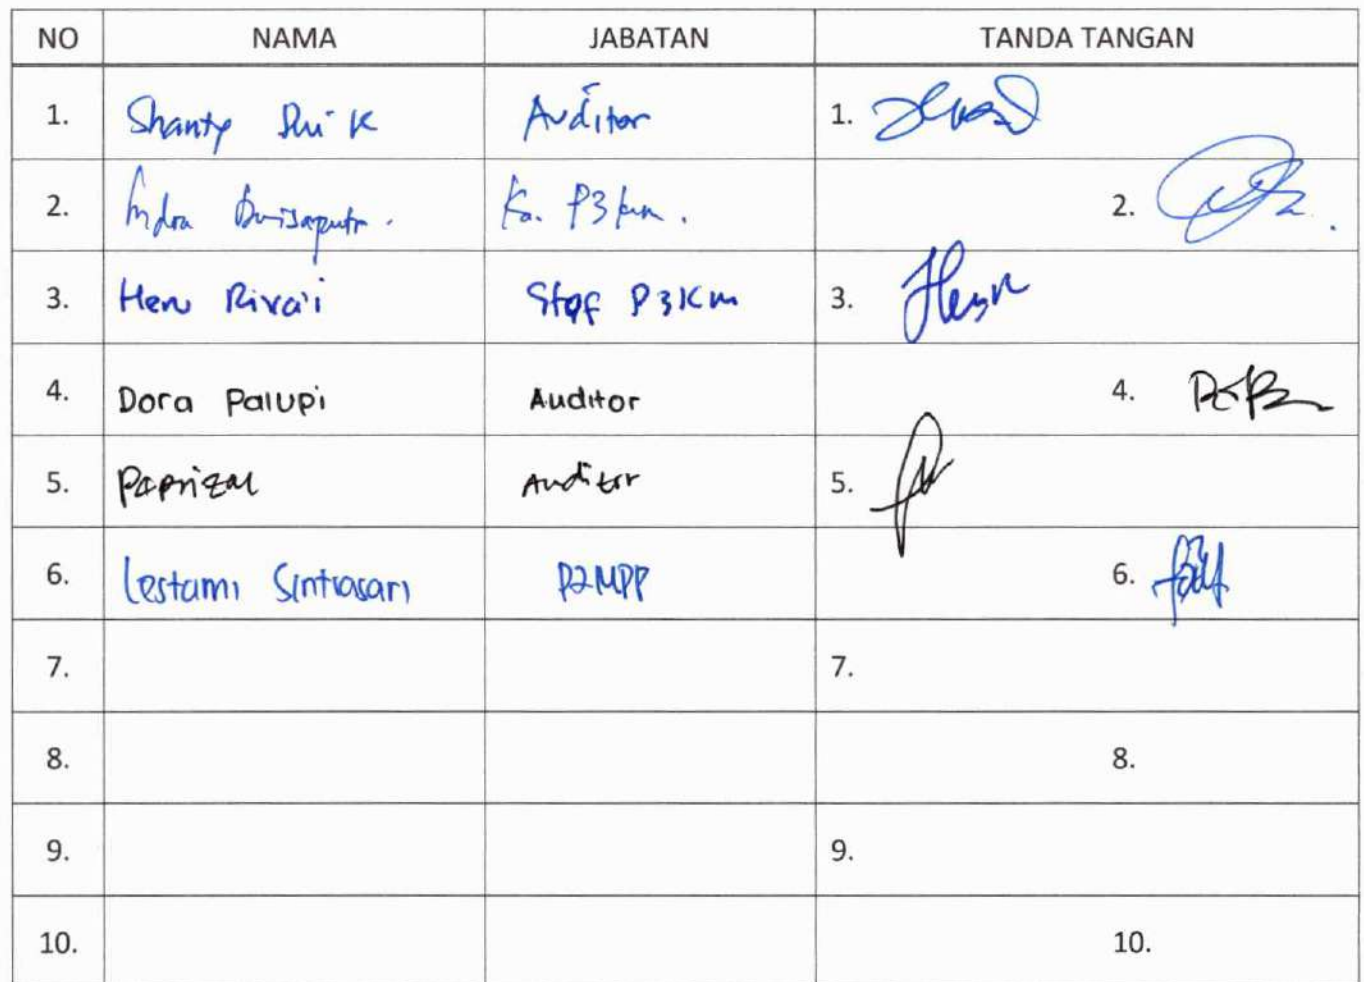 NO NAMA JABATAN TANDA TANGAN
1. Shanty Dwi K Auditor 1.
2. Indra Dwisaputra. Ka. P3km. 2.
3. Heru Rivai'i Staf P3Km 3.
4. Dora Palupi Auditor 4.
5. Paprizal Auditor 5.
6. Lestami Sintiasari P2MPP 6.
7. 7.
8. 8.
9. 9.
10. 10.